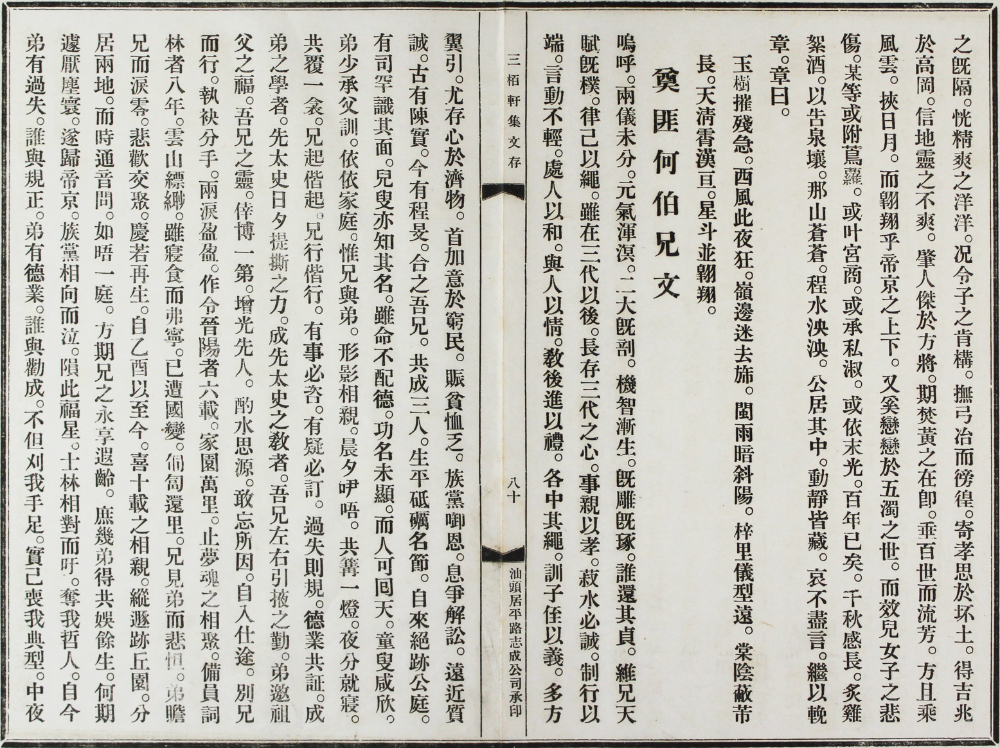 之旣隔。恍精爽之洋洋。况令子之肯構。撫弓冶而徬徨。寄孝思於坏土。得吉兆
於高岡。信地靈之不爽。肇人傑於方將。期焚黃之在卽。垂百世而流芳。方且乘
風雲。挾日月。而翱翔乎帝京之上下。又奚戀戀於五濁之世。而效兒女子之悲
傷。某等或附蔦蘿。或叶宮商。或承私淑。或依末光。百年已矣。千秋感長。炙雞
絮酒。以吿泉壤。那山蒼蒼。程水泱泱。公居其中。動靜皆藏。哀不盡言。繼以輓
章。章曰。
玉樹摧殘急。西風此夜狂。嶺邊迷去斾。閩雨暗斜陽。梓里儀型遠。棠陰蔽芾
長。天淸霄漢亘。星斗並翱翔。
奠匪何伯兄文
嗚呼。兩儀未分。元氣渾溟。二大旣剖。機智漸生。旣雕旣琢。誰還其貞。維兄天
賦旣樸。律己以繩。雖在三代以後。長存三代之心。事親以孝。菽水必誠。制行以
端。言動不輕。處人以和。與人以情。敎後進以禮。各中其繩。訓子侄以義。多方
三栢軒集文存
八十
汕頭居平路志成公司承印
翼引。尤存心於濟物。首加意於窮民。賑貧恤乏。族黨啣恩。息爭解訟。遠近質
誠。古有陳實。今有程旻。合之吾兄。共成三人。生平砥礪名節。自來絕跡公庭。
有司罕識其面。兒叟亦知其名。雖命不配德。功名未顯。而人可囘天。童叟咸欣。
弟少承父訓。依依家庭。惟兄與弟。形影相親。晨夕咿唔。共篝一燈。夜分就寢。
共覆一衾。兄起偕起。兄行偕行。有事必咨。有疑必訂。過失則規。德業共証。成
弟之學者。先太史日夕提撕之力。成先太史之敎者。吾兄左右引掖之勤。弟邀祖
父之福。吾兄之靈。倖博一第。增光先人。酌水思源。敢忘所因。自入仕途。別兄
而行。執袂分手。兩淚盈盈。作令晉陽者六載。家園萬里。止夢魂之相聚。備員詞
林者八年。雲山縹緲。雖寢食而弗寧。已遭國變。匍匐還里。兄見弟而悲恒。弟瞻
兄而淚零。悲歡交聚。慶若再生。自乙酉以至今。喜十載之相親。縱遯跡丘園。分
居兩地。而時通音問。如晤一庭。方期兄之永享遐齡。庶幾弟得共娛餘生。何期
遽厭塵寰。遂歸帝京。族黨相向而泣。隕此福星。士林相對而吁。奪我哲人。自今
弟有過失。誰與規正。弟有德業。誰與勸成。不但刈我手足。實已喪我典型。中夜